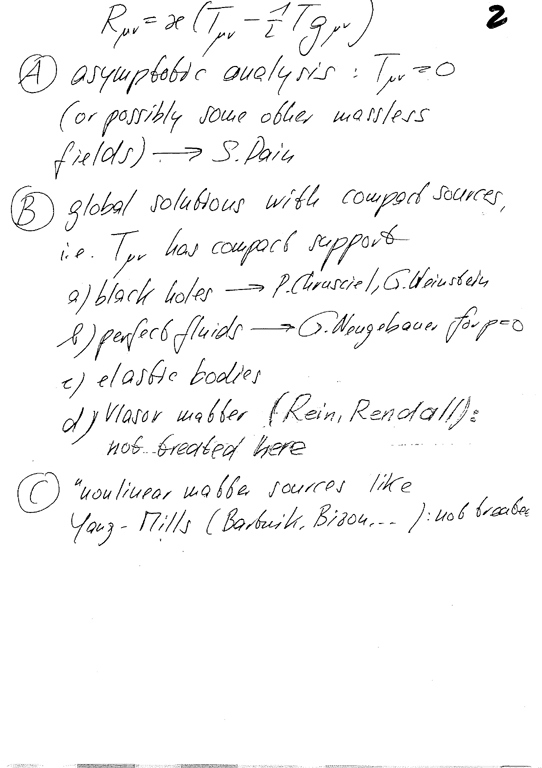 R_μν = ϰ (T_μν − 1/2 T g_μν)
2
(A) asymptotic analysis : T_μν = 0
(or possibly some other massless
fields) → S. Dain
(B) global solutions with compact sources,
i.e. T_μν has compact support
a) black holes → P. Chrusciel, G. Weinstein
b) perfect fluids → G. Neugebauer for p=0
c) elastic bodies
d) Vlasov matter (Rein, Rendall):
not treated here
(C) "nonlinear matter sources like
Yang-Mills (Bartnik, Bizon, ... ): not treated